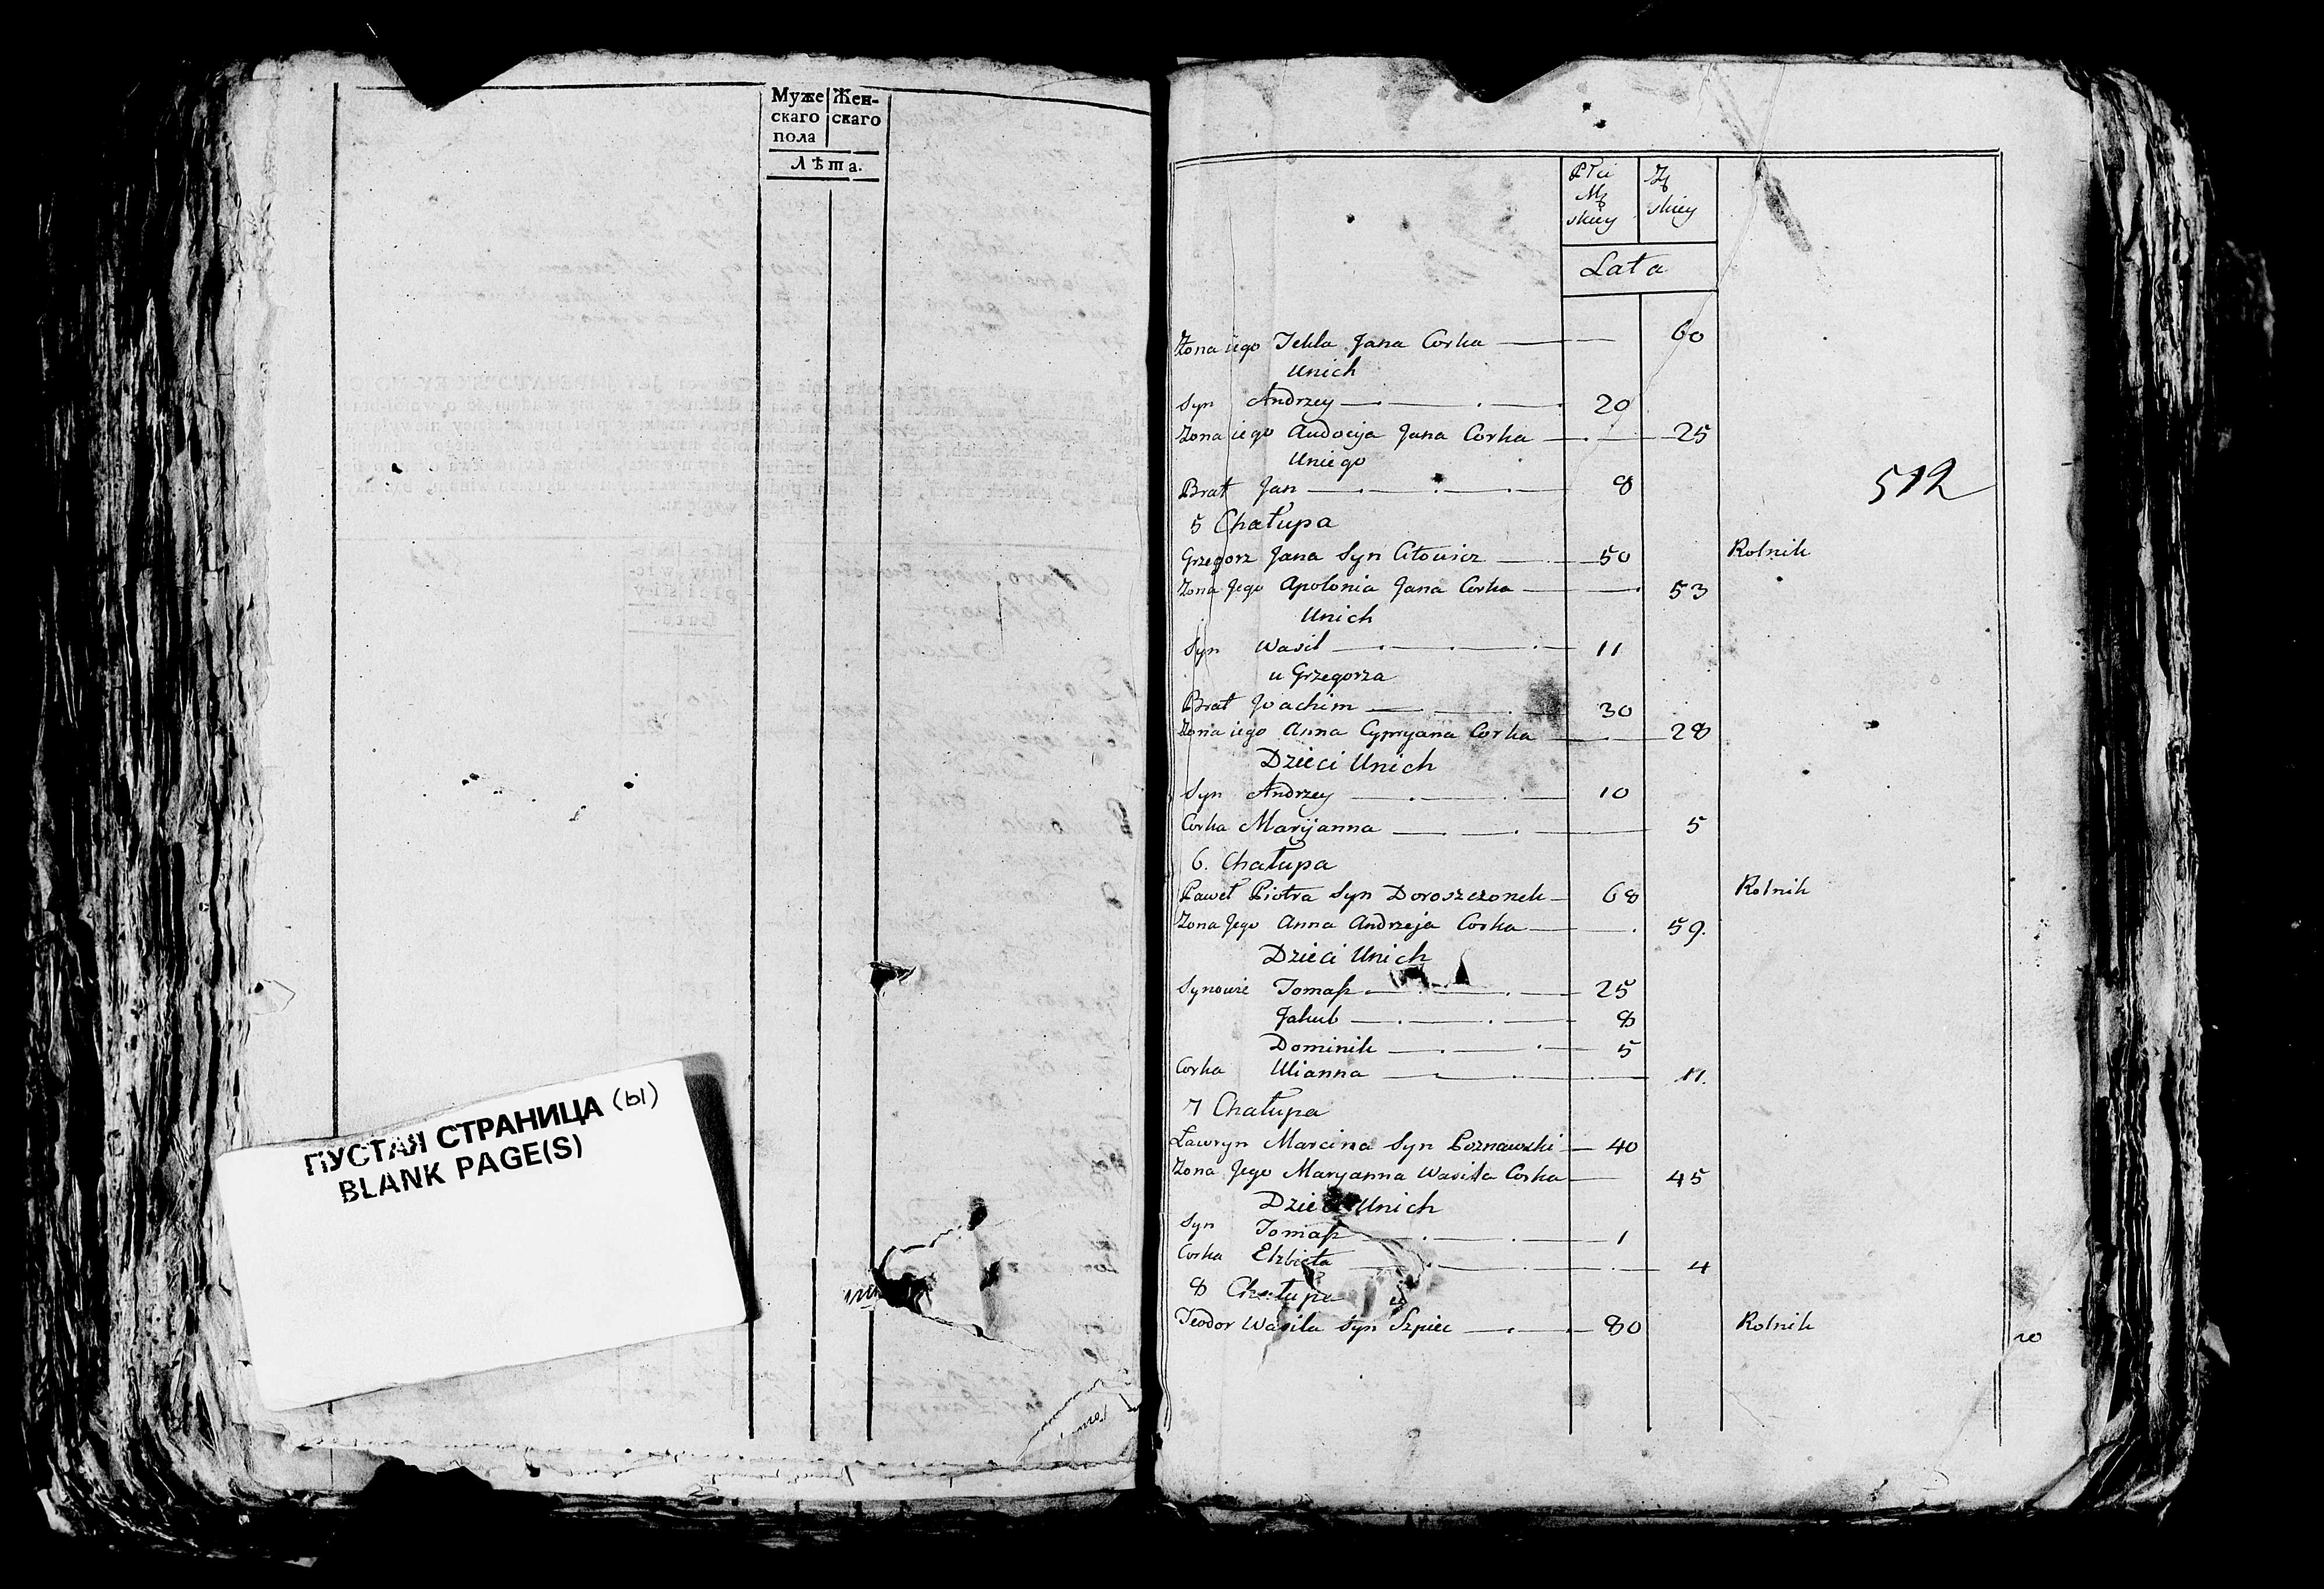 Муже Жен-
скаго скаго
пола
Лѣта.
ПУСТАЯ СТРАНИЦА (ы)
BLANK PAGE(S)
Płci Mę skiey
Żę skiey
Lata
Zona iego Tekla Jana Corka 60
Unich
Syn Andrzey 20
Zona iego Audocija Jana Corka 25
Uniego
Brat Jan 8
512
5 Chałupa
Grzegorz Jana Syn 50 Rolnik
Zona Jego Apolonia Jana Corka 53
Unich
Syn Wasil 11
u Grzegorza
Brat Joachim 30
Zona iego Anna Cypryana Corka 28
Dzieci Unich
Syn Andrzey 10
Corka Maryjanna 5
6. Chałupa
Paweł Piotra Syn Doroszczonek 68 Rolnik
Zona Jego Anna Andrzeja Corka 59.
Dzieci Unich
Synowie Tomasz 25
Jakub 8
Dominik 5
Corka Ulianna
7 Chałupa
Lawryn Marcina Syn Poznawski 40
Zona Jego Maryanna Wasila Corka 45
Dzieci Unich
Syn Tomasz 1
Corka Elzbieta 4
8 Chałupa
Teodor Wasila Syn Szpiec 80 Rolnik